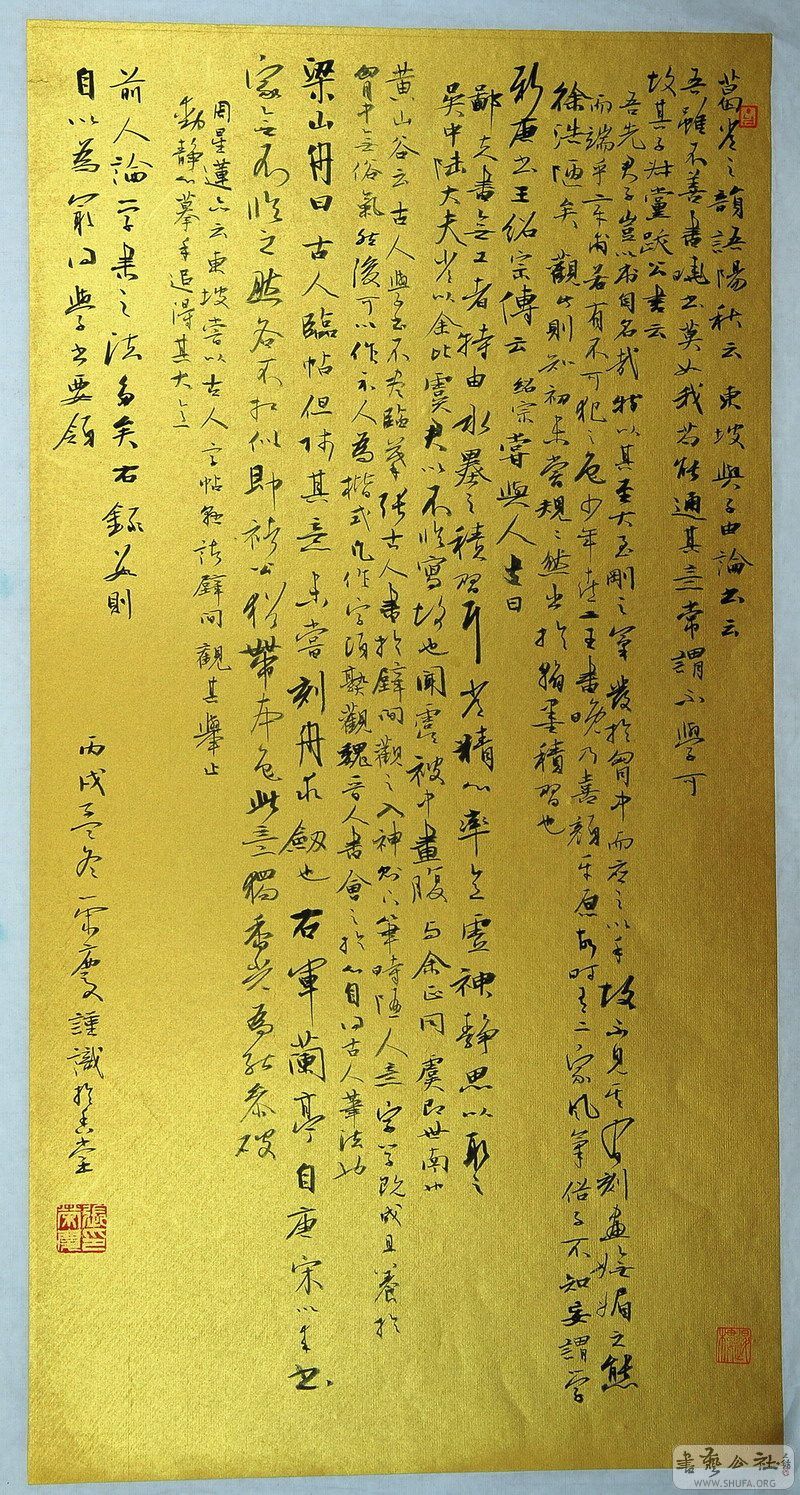 葛常之韻語陽秋云東坡與子由論書云
吾雖不善書曉書莫如我苟能通其意常謂不學可
故其子叔黨跋公書云
吾先君子豈以書自名哉特以其至大至剛之氣發於胸中而應之以手故不見其有刻畫嫵媚之態
而端乎章甫若有不可犯之色少年喜二王書晚乃喜顏平原故時有二家風氣俗子不知妄謂學
徐浩陋矣觀此則知初未嘗規規然出於翰墨積習也
新唐書王紹宗傳云紹宗嘗與人書曰
鄙夫書無工者特由水墨之積習耳常精心率意虛神靜思以取之
吳中陸大夫常以余比虞君以不臨寫故也聞虞被中畫腹與余正同虞即世南也
黃山谷云古人學書不盡臨摹張古人書於壁間觀之入神則下筆時隨人意字學既成且養於
胸中無俗氣然後可以作示人為楷式凡作字須熟觀魏晉人書會之於心自得古人筆法也
梁山舟曰古人臨帖但師其意未嘗刻舟求劍也右軍蘭亭自唐宋以來書
家無不臨之然各不相似即褚公猶帶本色此意獨香光為能參破
周星蓮亦云東坡嘗以古人字帖懸諸壁間觀其舉止
動靜心摹手追得其大意
前人論學書之法多矣右錄數則
自以為最得學書要領
丙戌孟冬榮慶謹識於堂
張榮慶印
書藝公社
WWW.SHUFA.ORG